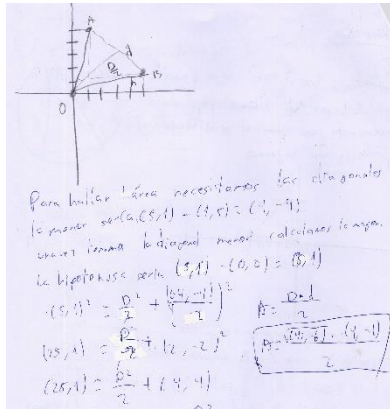 A
A
D/2
B
O
Para hallar área necesitamos las diagonales
la menor sería (5,1) - (1,5) = (4,-4)
la diagonal menor calculamos la mayor.
La hipotenusa sería (5,1) - (0,0) = (5,1)
(5,1)² = D²/2 + ((4,-4)/2)²
A = D·d/2
(25,1) = D²/2 + (2,-2)²
(25,1) = D²/2 + (4,4)